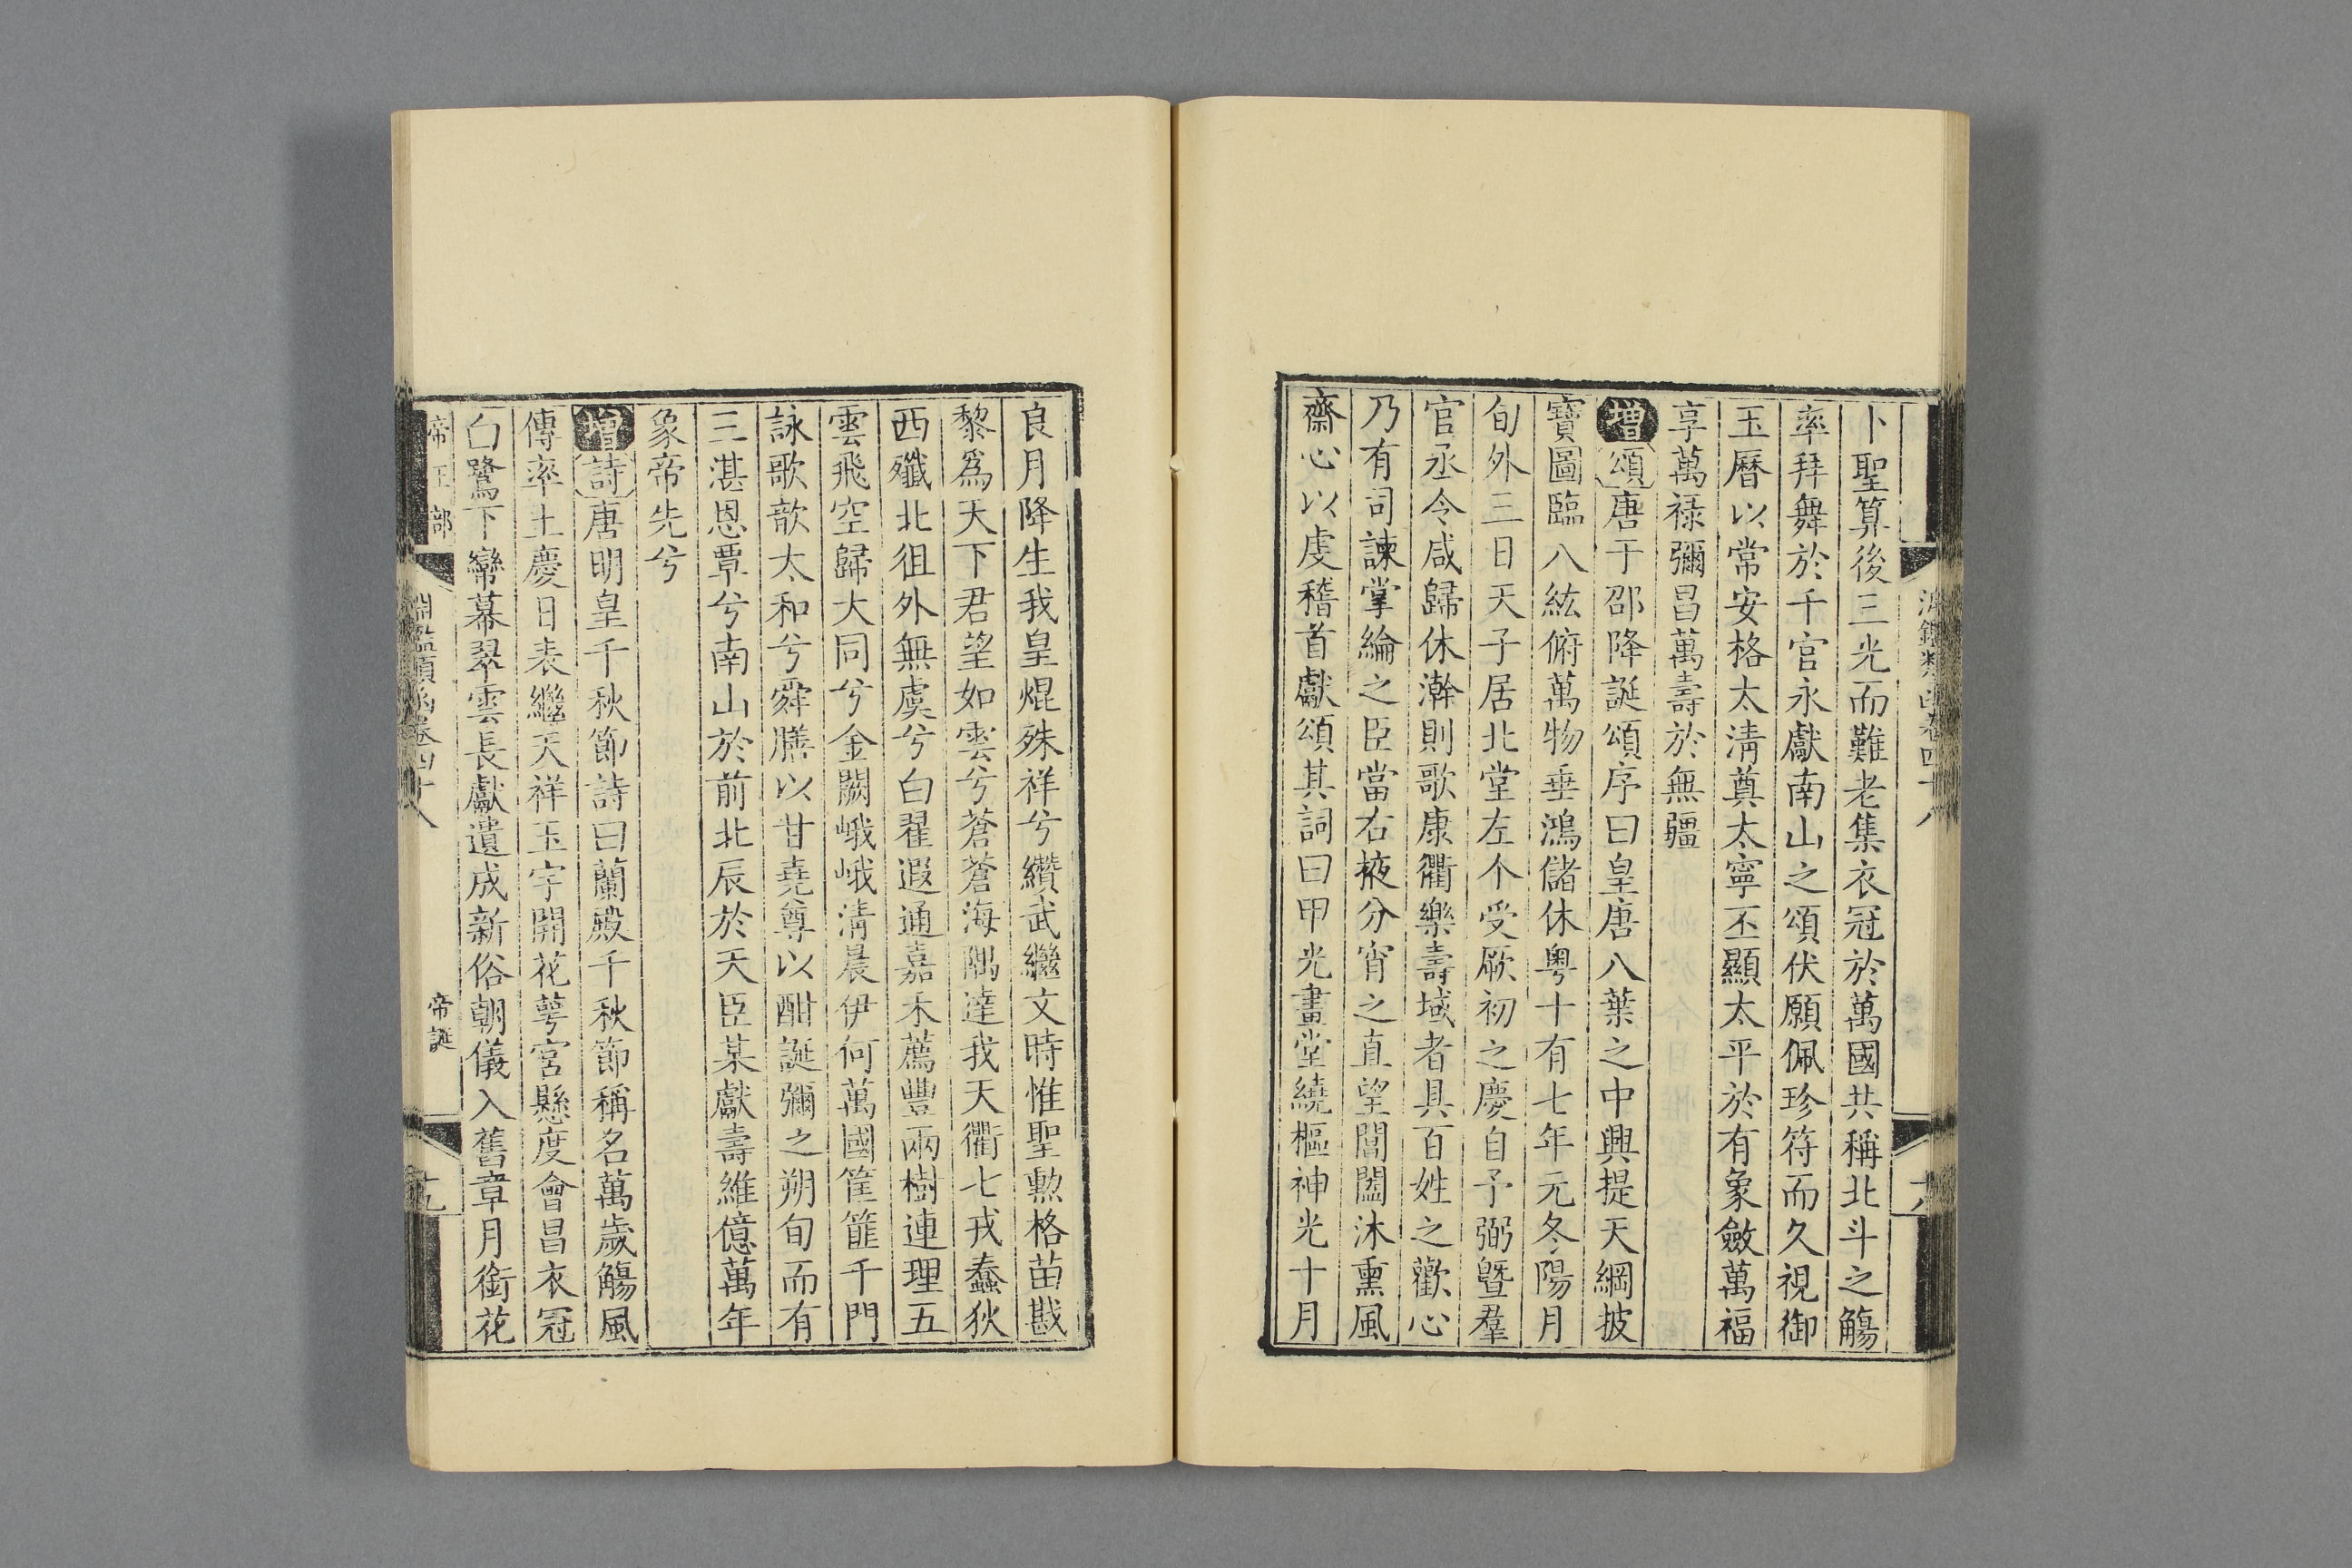 卜聖算後三光而難老集衣冠於萬國共稱北斗之觴
率拜舞於千官永獻南山之頌伏願佩珍符而久視御
玉曆以常安格太清奠太寧丕顯太平於有象斂萬福
享萬祿彌昌萬壽於無疆
增頌唐于邵降誕頌序曰皇唐八葉之中興提天綱披
寶圖臨八紘俯萬物垂鴻儲休粵十有七年元冬陽月
旬外三日天子居北堂左个受厥初之慶自予弼曁羣
官丞令咸歸休澣則歌康衢樂壽域者具百姓之歡心
乃有司諫掌綸之臣當右掖分宵之直望閶闔沐熏風
齋心以虔稽首獻頌其詞曰甲光畫堂繞樞神光十月
良月降生我皇焜殊祥兮纘武繼文時惟聖勲格苗戡
黎爲天下君望如雲兮蒼蒼海隅達我天衢七戎蠢狄
西殲北徂外無虞兮白翟遐通嘉禾薦豐兩樹連理五
雲飛空歸大同兮金闕峨峨清晨伊何萬國筐篚千門
詠歌歆太和兮舜膳以甘堯尊以酣誕彌之朔旬而有
三湛恩覃兮南山於前北辰於天臣某獻壽維億萬年
象帝先兮
增詩唐明皇千秋節詩曰蘭殿千秋節稱名萬歲觴風
傳率土慶日表繼天祥玉宇開花萼宮懸度會昌衣冠
白鷺下帟幕翠雲長獻遺成新俗朝儀入舊章月銜花
帝王部
淵鑑類函卷四十八
帝誕